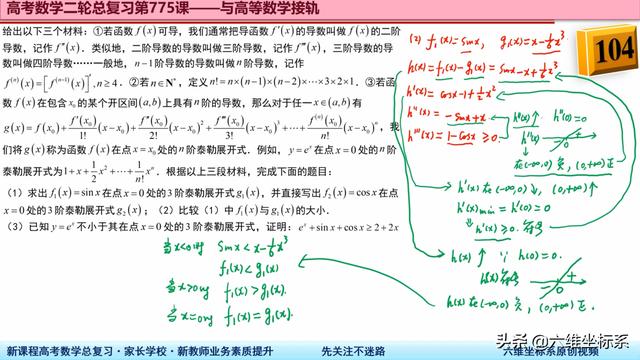 高考数学二轮总复习第775课——与高等数学接轨
104
给出以下三个材料：①若函数 f(x) 可导，我们通常把导函数 f'(x) 的导数叫做 f(x) 的二阶
导数，记作 f''(x)．类似地，二阶导数的导数叫做三阶导数，记作 f'''(x)，三阶导数的导
数叫做四阶导数……一般地，n−1 阶导数的导数叫做 n 阶导数，记作
f⁽ⁿ⁾(x)=[f⁽ⁿ⁻¹⁾(x)]',n≥4．②若 n∈N*，定义 n!=n×(n−1)×(n−2)×⋯×3×2×1．③若函
数 f(x) 在包含 x₀ 的某个开区间 (a,b) 上具有 n 阶的导数，那么对于任一 x∈(a,b) 有
g(x)=f(x₀)+f'(x₀)/1!(x−x₀)+f''(x₀)/2!(x−x₀)²+f'''(x₀)/3!(x−x₀)³+⋯+f⁽ⁿ⁾(x₀)/n!(x−x₀)ⁿ，我
们将 g(x) 称为函数 f(x) 在点 x=x₀ 处的 n 阶泰勒展开式．例如，y=eˣ 在点 x=0 处的 n 阶
泰勒展开式为 1+x+1/2x²+⋯+1/n!xⁿ．根据以上三段材料，完成下面的题目：
（1）求出 f₁(x)=sinx 在点 x=0 处的 3 阶泰勒展开式 g₁(x)，并直接写出 f₂(x)=cosx 在点
x=0 处的 3 阶泰勒展开式 g₂(x)；（2）比较（1）中 f₁(x) 与 g₁(x) 的大小．
（3）已知 y=eˣ 不小于其在点 x=0 处的 3 阶泰勒展开式，证明：eˣ+sinx+cosx≥2+2x
当x<0时 sinx<x−1/6x³
f₁(x)<g₁(x)
当x>0时 f₁(x)>g₁(x).
当x=0时 f₁(x)=g₁(x).
(2) f₁(x)=sinx, g₁(x)=x−1/6x³
h(x)=f₁(x)−g₁(x)=sinx−x+1/6x³
h'(x)=cosx−1+1/2x²
h''(x)=−sinx+x
h'''(x)=1−cosx≥0.
h''(x)↑ h''(0)=0
h''(x)
−0+
在(−∞,0)负,(0,+∞)正
h'(x)在(−∞,0)↓,(0,+∞)↑
h'(x)min=h'(0)=0
h'(x)≥0. 符号
h(x)↑ ∵h(0)=0.
h(x)符号
−0+
h(x)在(−∞,0)负,(0,+∞)正.
新课程高考数学总复习·家长学校·新教师业务素质提升
先关注不迷路
六维坐标系原创视频
头条@六维坐标系